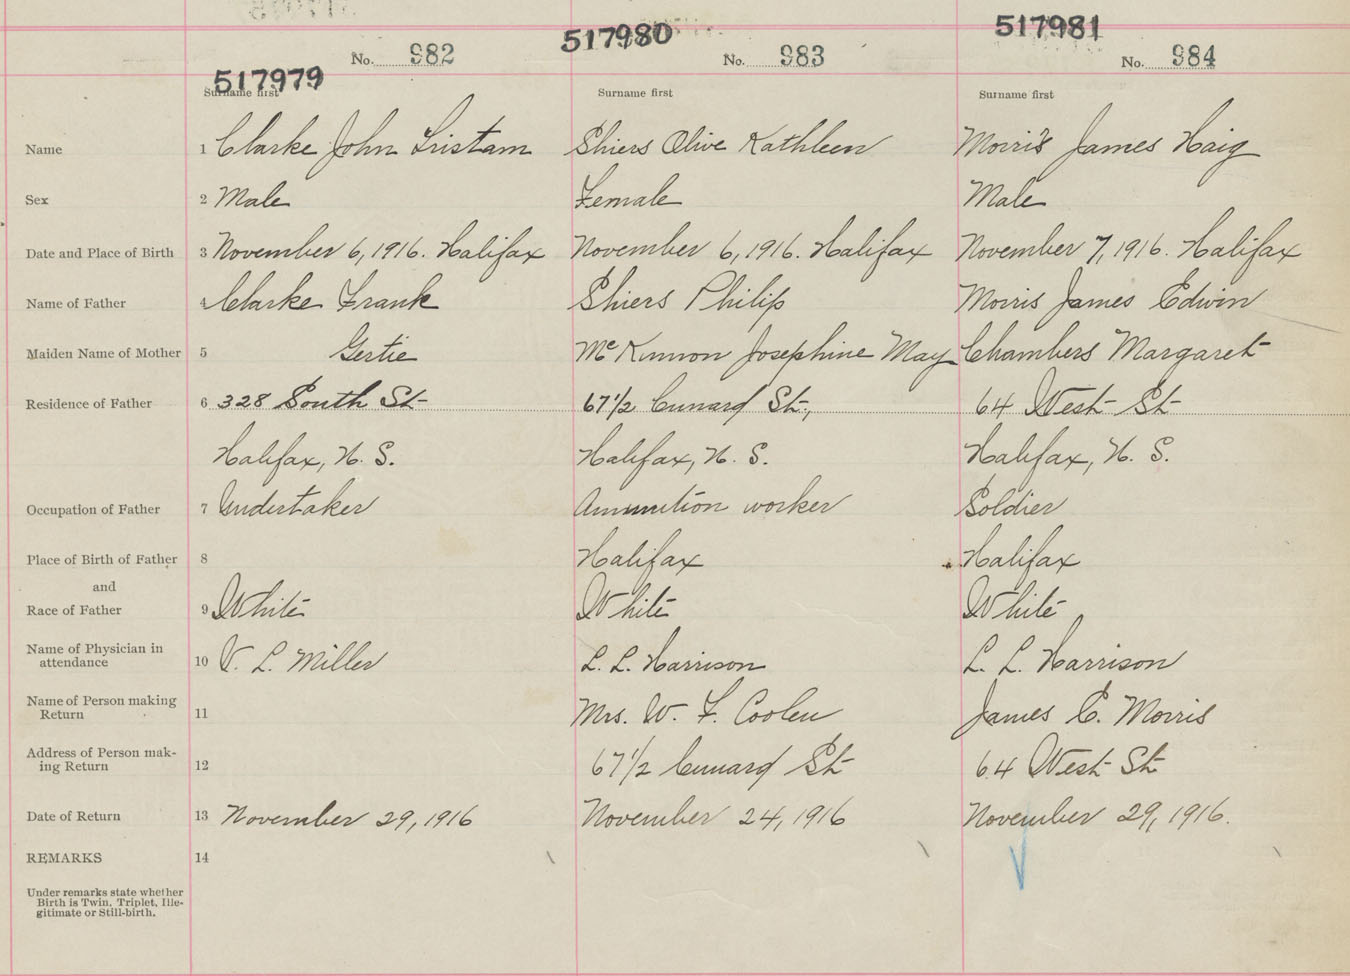 517979 No. 982 517980 No. 983 517981 No. 984
Surname first Surname first Surname first
Name 1 Clarke John Tristam Shiers Olive Kathleen Morris James Haig
Sex 2 Male Female Male
Date and Place of Birth 3 November 6, 1916. Halifax November 6, 1916. Halifax November 7, 1916. Halifax
Name of Father 4 Clarke Frank Shiers Philip Morris James Edwin
Maiden Name of Mother 5 Gertie McKinnon Josephine May Chambers Margaret
Residence of Father 6 328 South St 67 1/2 Cunard St., 64 West St
Halifax, N. S. Halifax, N. S. Halifax, N. S.
Occupation of Father 7 Undertaker Ammunition worker Soldier
Place of Birth of Father 8 Halifax Halifax
and
Race of Father 9 White White White
Name of Physician in
attendance 10 V. L. Miller L. L. Harrison L. L. Harrison
Name of Person making
Return 11 Mrs. W. F. Coolen James E. Morris
Address of Person mak-
ing Return 12 67 1/2 Cunard St 64 West St
Date of Return 13 November 29, 1916 November 24, 1916 November 29, 1916.
REMARKS 14
Under remarks state whether
Birth is Twin, Triplet, Ille-
gitimate or Still-birth.